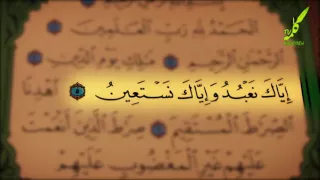 الحمد لله رب العلمين
الرحمن الرحيم ملك يوم الدين
إِيَّاكَ نَعْبُدُ وَإِيَّاكَ نَسْتَعِينُ ٥ اهدنا
الصرط المستقيم صرط الذين أنعمت
عليهم غير المغضوب عليهم